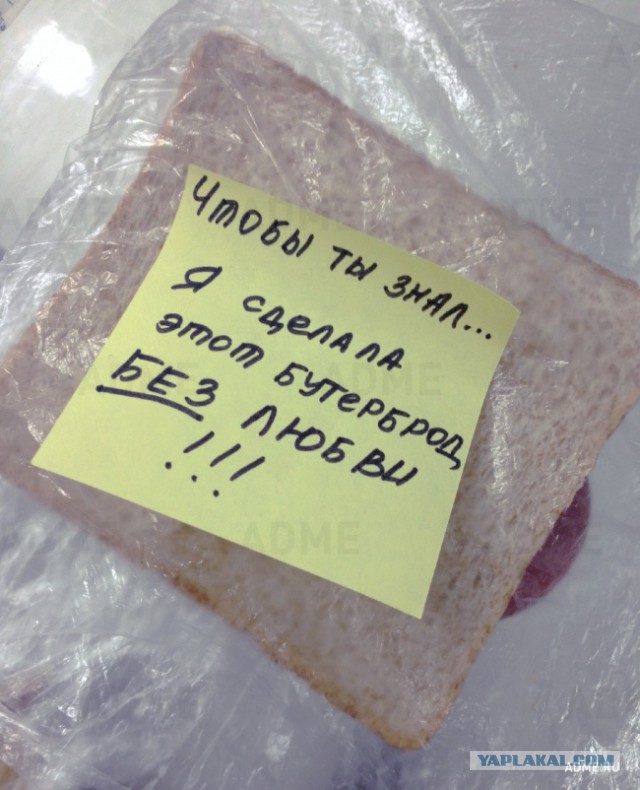 Чтобы ты знал...
Я сделала
этот бутерброд
БЕЗ любви
!!!
ADME
ADME
YAPLAKAL.COM
ADME.RU